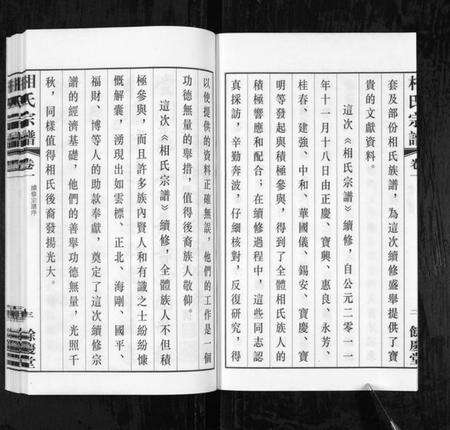 相氏宗譜
卷一
二
餘慶堂
套及部份相氏族譜，為這次續修盛舉提供了寶
貴的文獻資料。
這次《相氏宗譜》續修，自公元二零一一
年十一月十八日由正慶、寶興、惠良、永芳、
桂春、建強、中和、華國儀、錫安、寶慶、寶
明等發起與積極參與，得到了全體相氏族人的
積極響應和配合；在續修過程中，這些同志認
真採訪，辛勤奔波，仔細核對，反復研究，得
以使提供的資料正確無誤，他們的工作是一個
功德無量的舉措，值得後裔族人敬仰。
這次《相氏宗譜》續修，全體族人不但積
極參與，而且許多族內賢人和有識之士紛紛慷
慨解囊，湧現出如雲標、正北、海剛、國平、
福財、博等人的助款奉獻，奠定了這次續修宗
譜的經濟基礎，他們的善舉功德無量，光照千
秋，同樣值得相氏後裔發揚光大。
相氏宗譜
卷一
續修宗譜序
三
餘慶堂